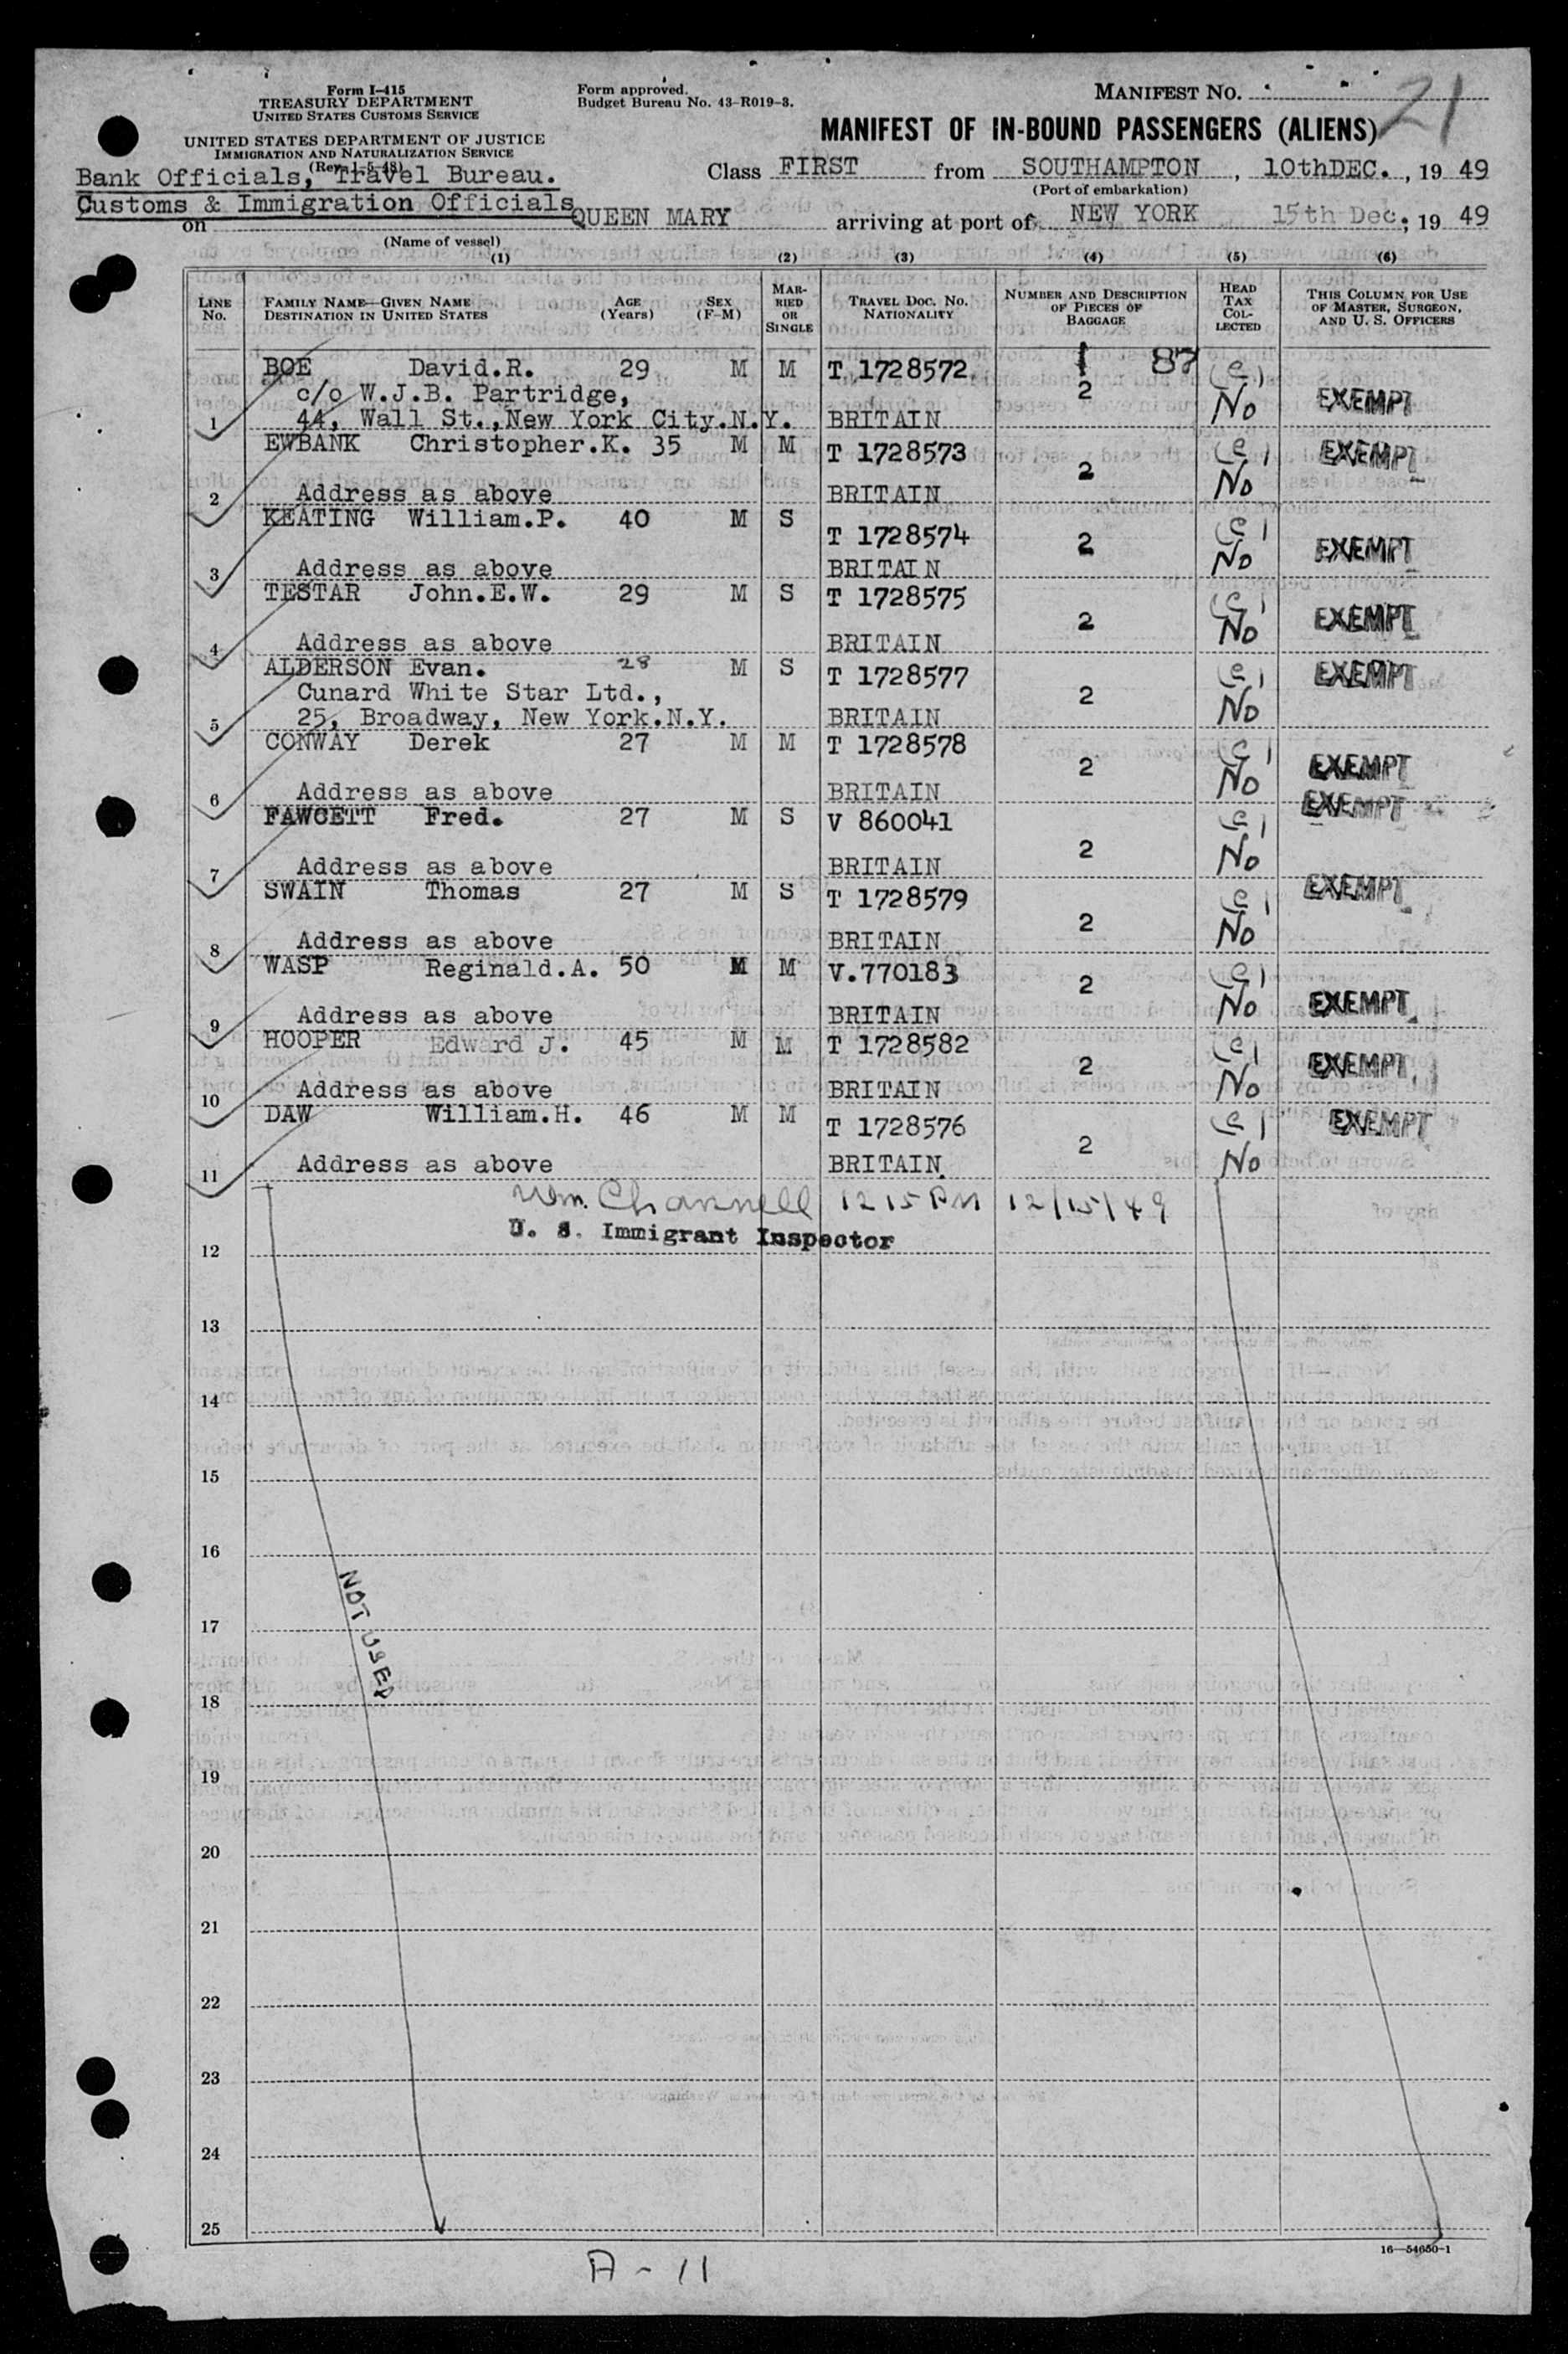 Form I-415
TREASURY DEPARTMENT
UNITED STATES CUSTOMS SERVICE
UNITED STATES DEPARTMENT OF JUSTICE
IMMIGRATION AND NATURALIZATION SERVICE
(Rev. 1-5-48)
Form approved.
Budget Bureau No. 43-R019-3.
MANIFEST NO. 21
MANIFEST OF IN-BOUND PASSENGERS (ALIENS)
Bank Officials, Travel Bureau.
Customs & Immigration Officials
Class FIRST from SOUTHAMPTON, 10thDEC., 19 49
(Port of embarkation)
on QUEEN MARY arriving at port of NEW YORK 15th Dec., 19 49
(Name of vessel)
(1) (2) (3) (4) (5) (6)
LINE No. FAMILY NAME—GIVEN NAME DESTINATION IN UNITED STATES AGE (Years) SEX (F-M) MARRIED OR SINGLE TRAVEL DOC. NO. NATIONALITY NUMBER AND DESCRIPTION OF PIECES OF BAGGAGE HEAD TAX COLLECTED THIS COLUMN FOR USE OF MASTER, SURGEON, AND U. S. OFFICERS
BOE David.R. 29 M M T 1728572 1 87
c/o W.J.B. Partridge, 2 No EXEMPT
1 44, Wall St.,New York City.N.Y. BRITAIN
EWBANK Christopher.K. 35 M M T 1728573 2 No EXEMPT
2 Address as above BRITAIN
KEATING William.P. 40 M S T 1728574 2 No EXEMPT
3 Address as above BRITAIN
TESTAR John.E.W. 29 M S T 1728575 2 No EXEMPT
4 Address as above BRITAIN
ALDERSON Evan. 28 M S T 1728577 EXEMPT
Cunard White Star Ltd., 2 No
5 25, Broadway, New York.N.Y. BRITAIN
CONWAY Derek 27 M M T 1728578 2 No EXEMPT
6 Address as above BRITAIN
FAWCETT Fred. 27 M S V 860041 2 No EXEMPT
7 Address as above BRITAIN
SWAIN Thomas 27 M S T 1728579 2 No EXEMPT
8 Address as above BRITAIN
WASP Reginald.A. 50 M M V.770183 2 No EXEMPT
9 Address as above BRITAIN
HOOPER Edward J. 45 M M T 1728582 2 No EXEMPT
10 Address as above BRITAIN
DAW William.H. 46 M M T 1728576 2 No EXEMPT
11 Address as above BRITAIN
Wm. Channell 12 15 PM 12/15/49
U. S. Immigrant Inspector
12
13
14
15
16
NOT USED
17
18
19
20
21
22
23
24
25
16—54650-1
A - 11